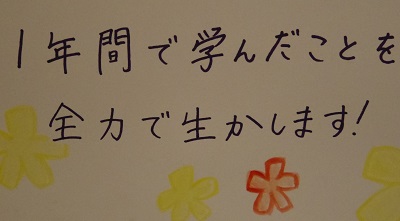 1年間で学んだことを
全力で生かします!